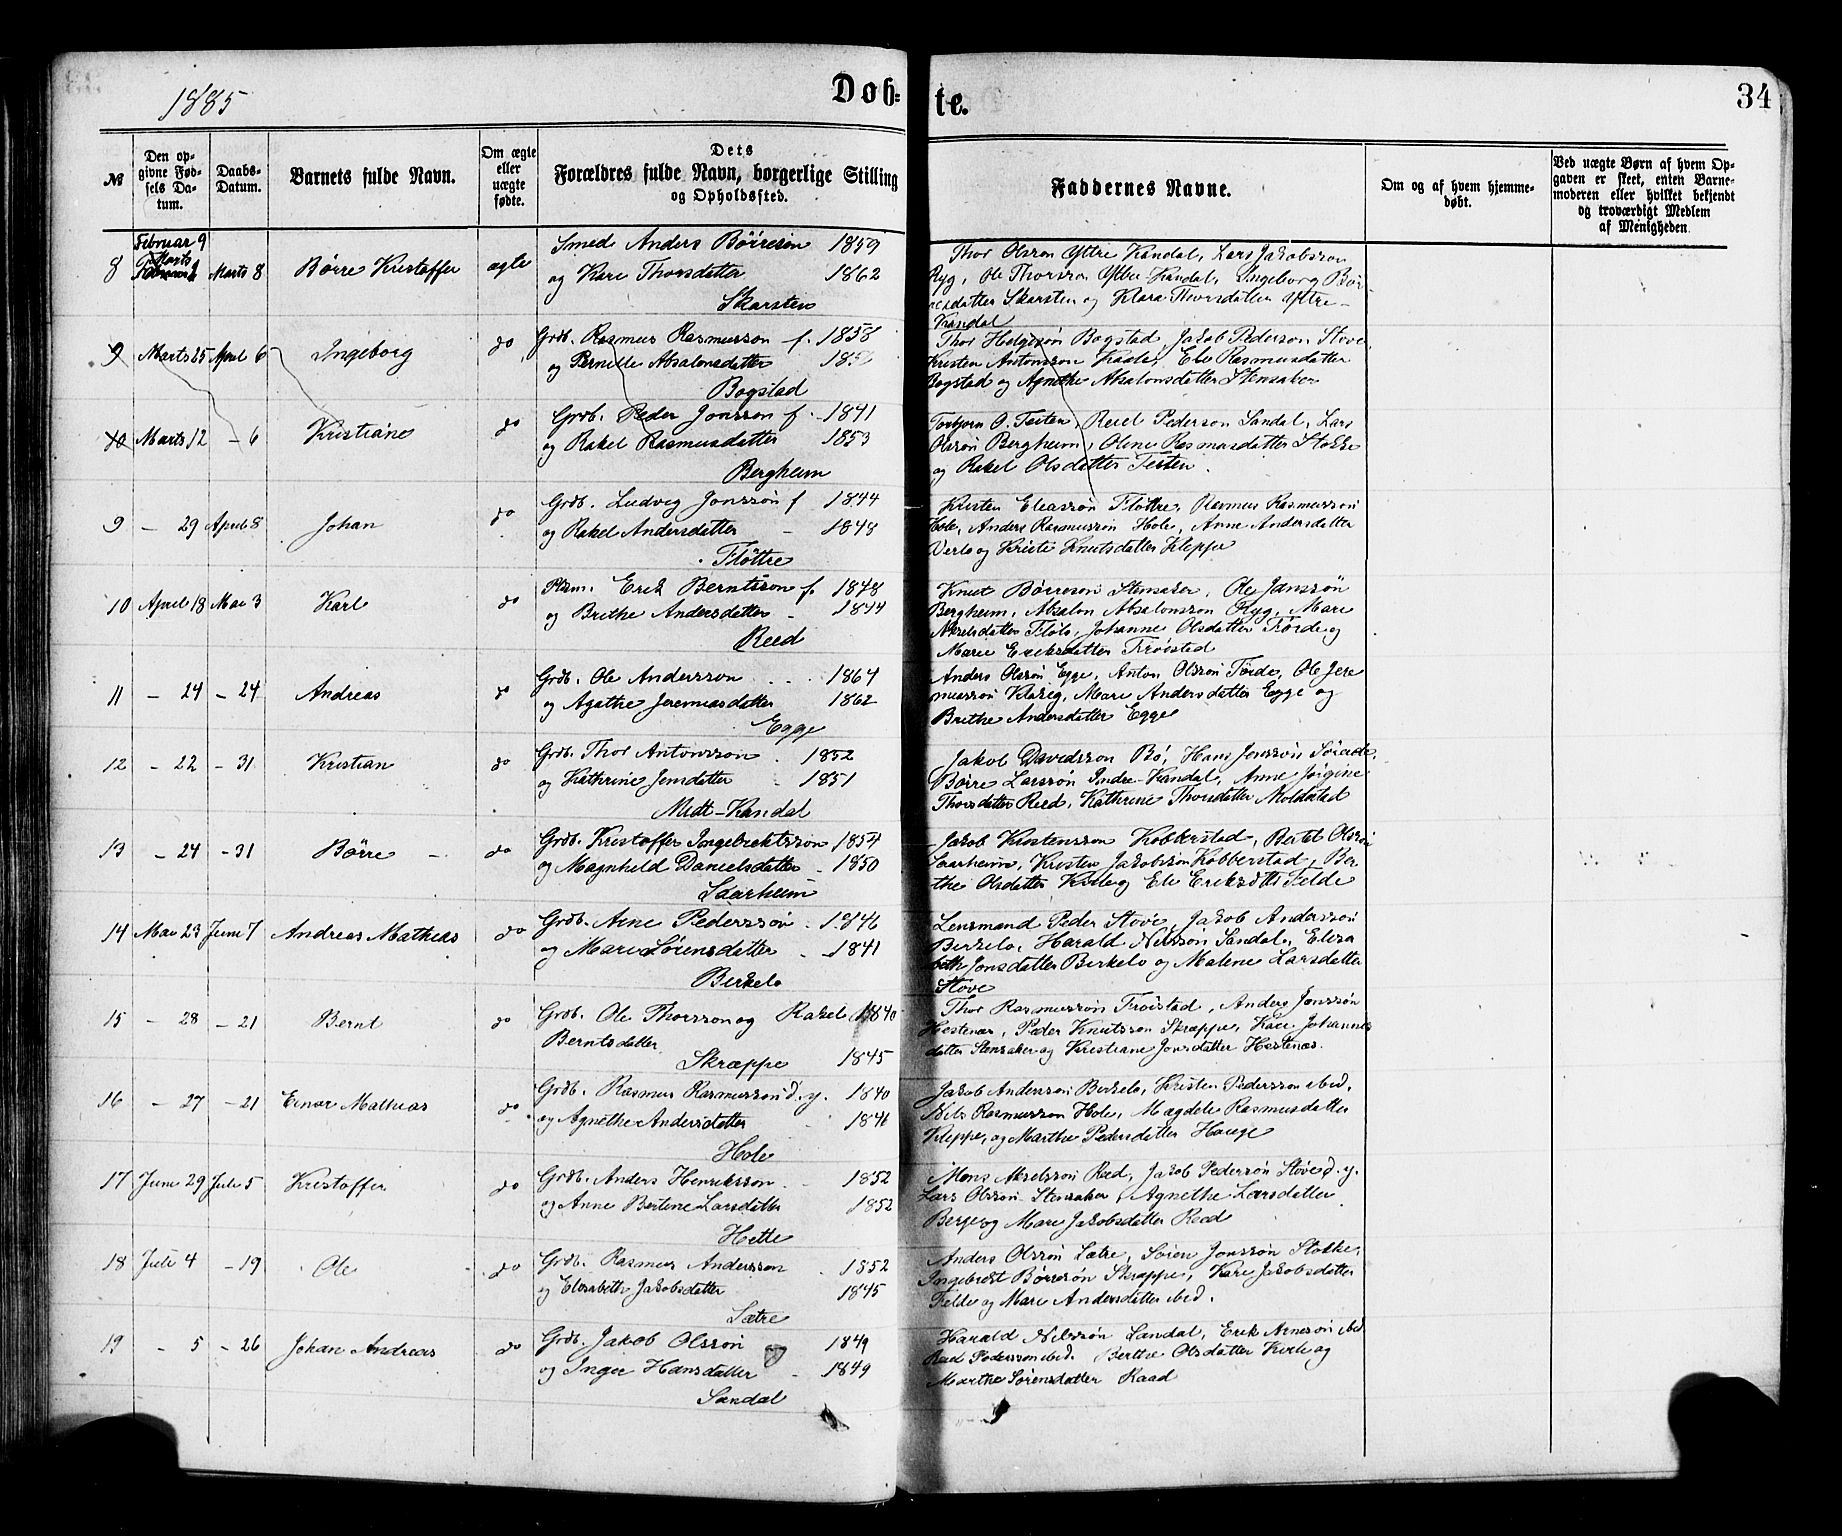 1885
Døb-
te.
34
No
Den op-
givne Fød-
sels Da-
tum.
Daabs-
Datum.
Barnets fulde Navn.
Om ægte
eller
uægte
fødte.
Dets
Forældres fulde Navn, borgerlige Stilling
og Opholdssted.
Faddernes Navne.
Om og af hvem hjemme-
døbt.
Ved uægte Børn af hvem Op-
gaven er skeet, enten Barne-
moderen eller hvilket bekjendt
og troværdigt Medlem
af Menigheden.
Februar 9
8 Marts 8 Børre Kristoffer ægte
Smed Anders Børreson 1859
og Kari Thorsdatter 1862
Skarsten
Thor Olsson Yttre Kandal, Lars Jakobsson
Ryg, Ole Thorsson Yttre-Kandal, Ingeborg Bør-
resdatter Skarsten og Klara Thorsdatter Yttre-
Kandal
9 Marts 25 April 6 Ingeborg do
Grdb. Rasmus Rasmusson f. 1858
og Pernille Absalonsdatter
Bogstad
Thor Helgeson Bogstad, Jakob Pederson Støve,
Kristen Antonsson, Eli Rasmusdatter
Bogstad og Agnethe Absalonsdatter Stensaker
10 Marts 12 - 6 Kristiane do
Grdb. Peder Jonsson f. 1841
og Rakel Rasmusdatter 1853
Bergheim
Torbjørn O. Teiten, Reiel Pederson Sandal, Lars
Olsson Bergheim, Oline Rasmusdatter Stokke
og Rakel Olsdatter Teiten.
9 - 29 April 8 Johan do
Grdb. Ludvig Jonsson f 1844
og Rakel Andersdatter - 1848
Fløttre
Kristen Eleasson Fløttre, Rasmus Rasmusson
Hole, Anders Rasmusson Hole, Anne Andersdatter
Verlo og Kristi Knutsdatter Kleppe
10 April 18 Mai 3 Karl do
Erik Berntsson f. 1848
og Brithe Andersdatter - 1844
Reed
Knut Børreson Stensaker, Ole Jansson
Bergheim, Absalon Absalonsson Ryg, Mari
Akselsdatter Fløto, Johanne Olsdatter Førde og
Marie Eriksdatter Troistad
11 - 24 - 24 Andreas do
Grdb. Ole Andersson 1864
og Agathe Jeremiasdatter 1862
Egge
Anders Olsson Egge, Anton Olsson Førde, Ole Jere
miasson Klareg, Mari Andersdatter Egge og
Brithe Andersdatter Egge
12 - 22 - 31 Kristian do
Grdb. Thor Antonsson 1852
og Kathrine Jensdatter 1851
Midt-Kandal
Jakob Davidsson Bø, Hans Jonsson Søreide,
Børre Larsson Indre-Kandal, Anne Jørgine
Thorsdatter Reed, Kathrine Thorsdatter Moldestad
13 - 24 - 31 Børre - do
Grdb. Kristoffer Ingebrektsson 1854
og Magnhild Danielsdatter 1850
Saarheim
Jakob Kristensson Kobberstad, Bertel Olsson
Saarheim, Kristen Jakobsson Kobberstad, Ber
the Olsdatter Kvile og Eli Eriksdtr Felde
14 Mai 23 Juni 7 Andreas Mathias do
Grdb. Arne Pedersson 1846
og Mari Sørensdatter 1841
Birkelo
Lensmand Peder Støve, Jakob Andersson
Birkelo, Harald Nilsson Sandal, Eliza
beth Jonsdatter Birkelo og Malene Larsdatter
Støve
15 - 28 - 21 Bernt do
Grdb. Ole Thorsson og Rakel 1840
Berntsdatter
Skræppe 1845
Thor Rasmusson Troistad, Anders Jonsson
Hestenæs, Peder Knutsson Skræppe, Kari Johannes
datter Stensaker og Kristiane Jonsdatter Hestenæs.
16 - 27 - 21 Einar Mathias do
Grdb. Rasmus Rasmusson d. y. 1840
og Agnethe Andersdatter 1846
Hole
Jakob Andersson Birkelo, Kristen Pedersson ibid,
Nils Rasmusson Hole, Magdeli Rasmusdatter
Kleppe, og Marthe Pedersdatter Hauge
17 Juni 29 Juli 5 Kristoffer do
Grdb. Anders Henriksson 1852
og Anne Bertine Larsdatter 1852
Hette
Mons Akselsson Reed, Jakob Pederson Støve d. y.
Lars Olsson Stensaker, Agnethe Larsdatter
Berje og Mari Jakobsdatter Reed
18 Juli 4 - 19 Ole do
Grdb. Rasmus Andersson 1852
og Elisabeth Jakobsdatter 1845
Sætre
Anders Olsson Sætre, Søren Jonsson Stokke,
Ingebrigt Børreson Skræppe, Kari Jakobsdatter
Felde og Mari Andersdatter ibid.
19 - 5 - 26 Johan Andreas do
Grdb. Jakob Olsson og 1849
og Inger Hansdatter - 1849
Sandal
Harald Nilsson Sandal, Erik Arneson ibid
Reiel Pedersson ibid. Berthe Olsdatter Kvile og
Marthe Sørensdatter Raad